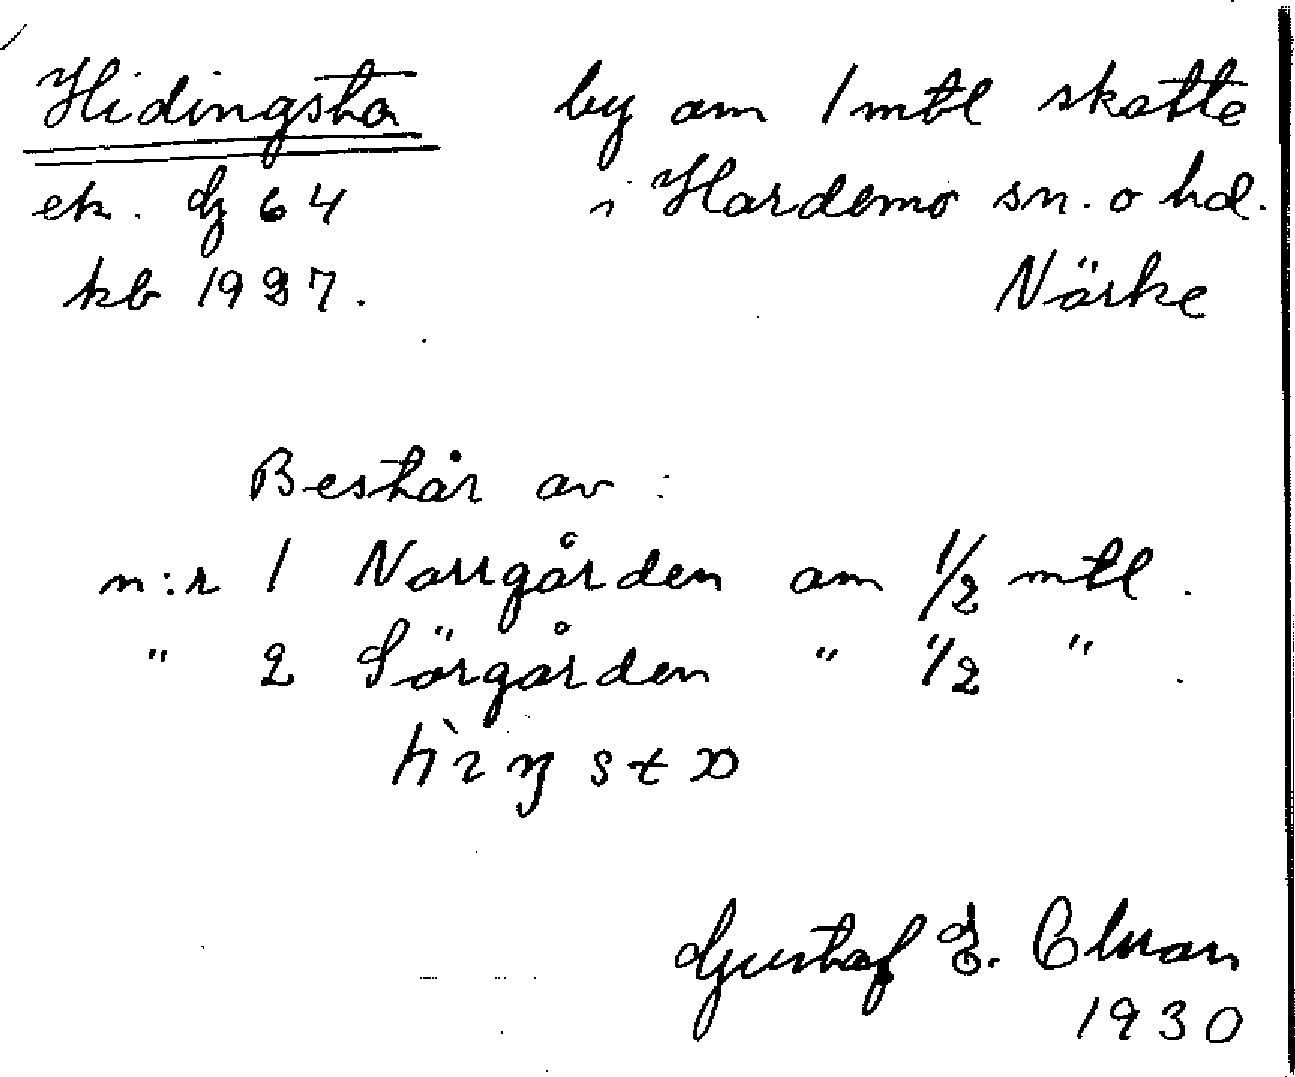 Hidingsta by om 1 mtl skatte
ek. dg 64 i Hardemo sn. o hd.
kb 1927. Närke
Består av :
n:r 1 Norrgården om 1/2 mtl.
" 2 Sörgården " 1/2 " .
Gustaf E.
1930